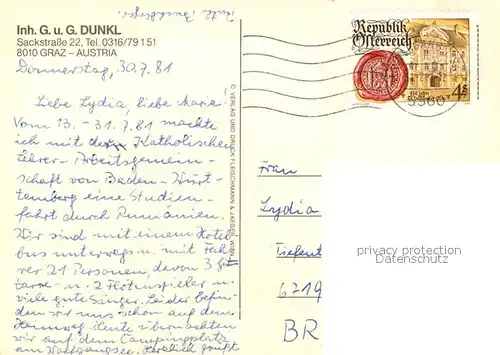 Inh. G. u. G. DUNKL
Sackstraße 22, Tel. 0316/79 1 51
8010 GRAZ – AUSTRIA
Donnerstag, 30.7.81
Liebe Lydia, liebe Maria.
Vom 13. - 31.7.81 machte
ich mit der Katholischen
Lehrer-Arbeitsgemein-
schaft von Baden-Würt-
temberg eine Studien-
fahrt durch Rumänien.
Wir sind mit einem Hotel
bus unterwegs u. mit Fah
rer 21 Personen, davon 3 Git
tarre- u. 2 Flötenspieler u.
viele gute Sänger. Leider befin
den wir uns schon auf dem
Heimweg. Heute übernachten
wir auf dem Campingplatz
am Wolfgangsee. Herzlich grüßt
© VERLAG UND DRUCK FLEISCHMANN & JAEGER, WIEN
Republik
Österreich
4 S
Frau
Lydia
Tiefent
6719
BR
privacy protection
Datenschutz